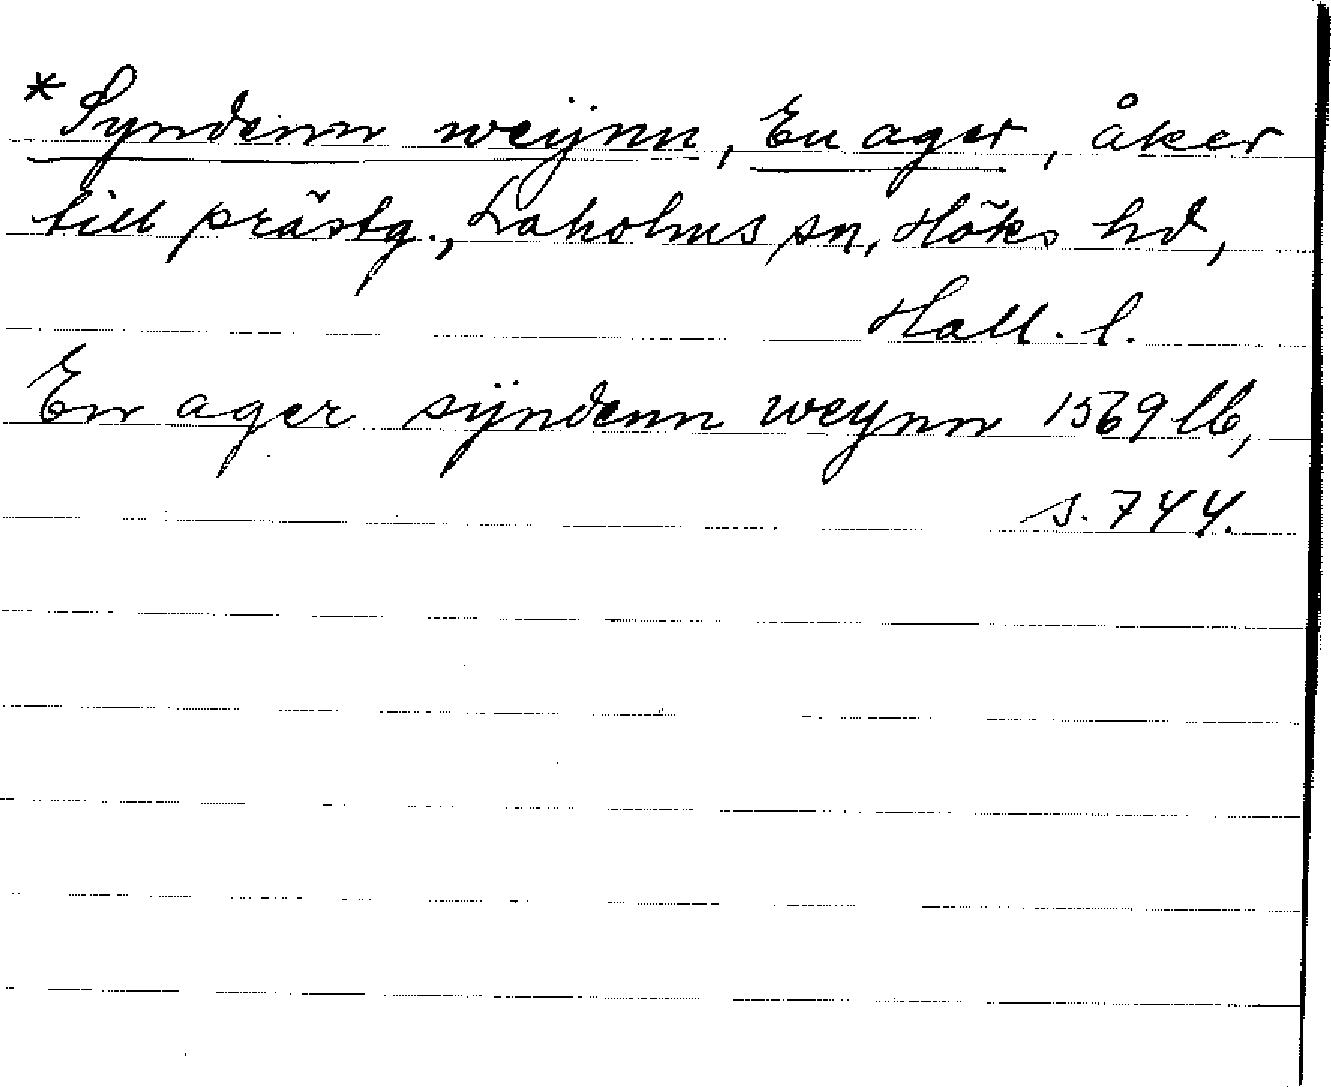 * Syndenn weÿnn, En ager, åker
till prästg., Laholms sn, Höks hd,
Hall. l.
En ager sÿndenn weynn 1569 lb,
s. 744.